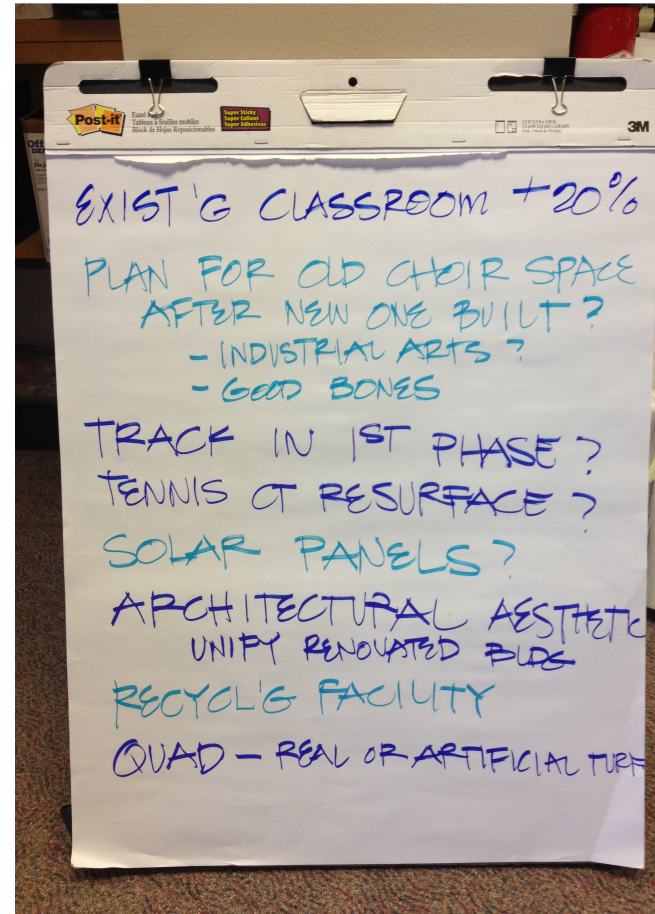 Post-it
Easel Pad
Tableau à feuilles mobiles
Block de Hojas Reposicionables
Super Sticky
Super Collant
Super Adhesivas
3M
EXIST'G CLASSROOM +20%
PLAN FOR OLD CHOIR SPACE
AFTER NEW ONE BUILT?
- INDUSTRIAL ARTS?
- GOOD BONES
TRACK IN 1ST PHASE?
TENNIS CT RESURFACE?
SOLAR PANELS?
ARCHITECTURAL AESTHETIC
UNIFY RENOVATED BLDG
RECYCL'G FACILITY
QUAD - REAL OR ARTIFICIAL TURF